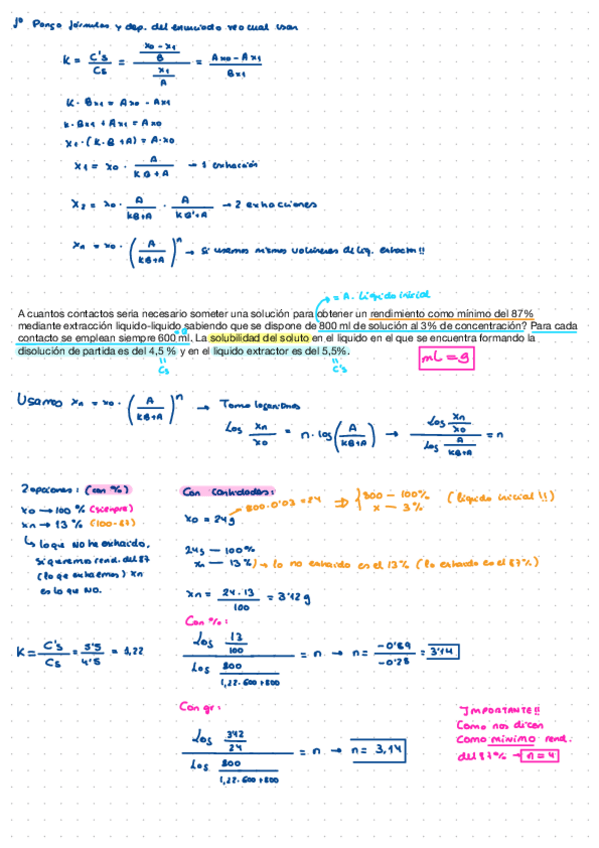 1º Pongo fórmulas y dep. del enunciado veo cual usar
K = C's / Cs = ((x0 - x1) / B) / (x1 / A) = (Ax0 - Ax1) / Bx1
K · Bx1 = Ax0 - Ax1
K · Bx1 + Ax1 = Ax0
x1 · (K · B + A) = A · x0
x1 = x0 · A / (KB + A) → 1 extracción
x2 = x0 · A / (KB + A) · A / (KB' + A) → 2 extracciones
xn = x0 · (A / (KB + A))^n → Si usamos mismos volúmenes de líq. extractor!!
→ = A. Líquido inicial
A cuantos contactos seria necesario someter una solución para obtener un rendimiento como mínimo del 87%
mediante extracción liquido-liquido sabiendo que se dispone de 800 ml de solución al 3% de concentración? Para cada
contacto se emplean siempre 600 ml. La solubilidad del soluto en el liquido en el que se encuentra formando la
= B
disolución de partida es del 4,5 % y en el liquido extractor es del 5,5%.
= Cs
= C's
mL = g
Usamos xn = x0 · (A / (KB + A))^n → Tomo logaritmos
Log xn / x0 = n · log (A / (KB + A)) → Log (xn / x0) / Log (A / (KB + A)) = n
2 opciones: (con %)
x0 → 100 % (siempre)
xn → 13 % (100-87)
↳ lo que NO he extraido,
si queremos rend. del 87
(lo que extraemos) xn
es lo que NO.
Con cantidades:
800 · 0'03 = 24 ⇒ { 800 — 100% (líquido inicial!!)
x — 3%
x0 = 24g
24g — 100%
xn — 13% ) → lo no extraido es el 13% (lo extraido es el 87%)
xn = 24 · 13 / 100 = 3'12 g
Con %:
K = C's / Cs = 5'5 / 4'5 = 1,22
Log (13 / 100) / Log (800 / (1,22 · 600 + 800)) = n → n = -0'89 / -0'28 = 3'14
Con gr:
Log (3'12 / 24) / Log (800 / (1,22 · 600 + 800)) = n → n = 3,14
IMPORTANTE!!
Como nos dicen
como mínimo rend.
del 87% → n = 4